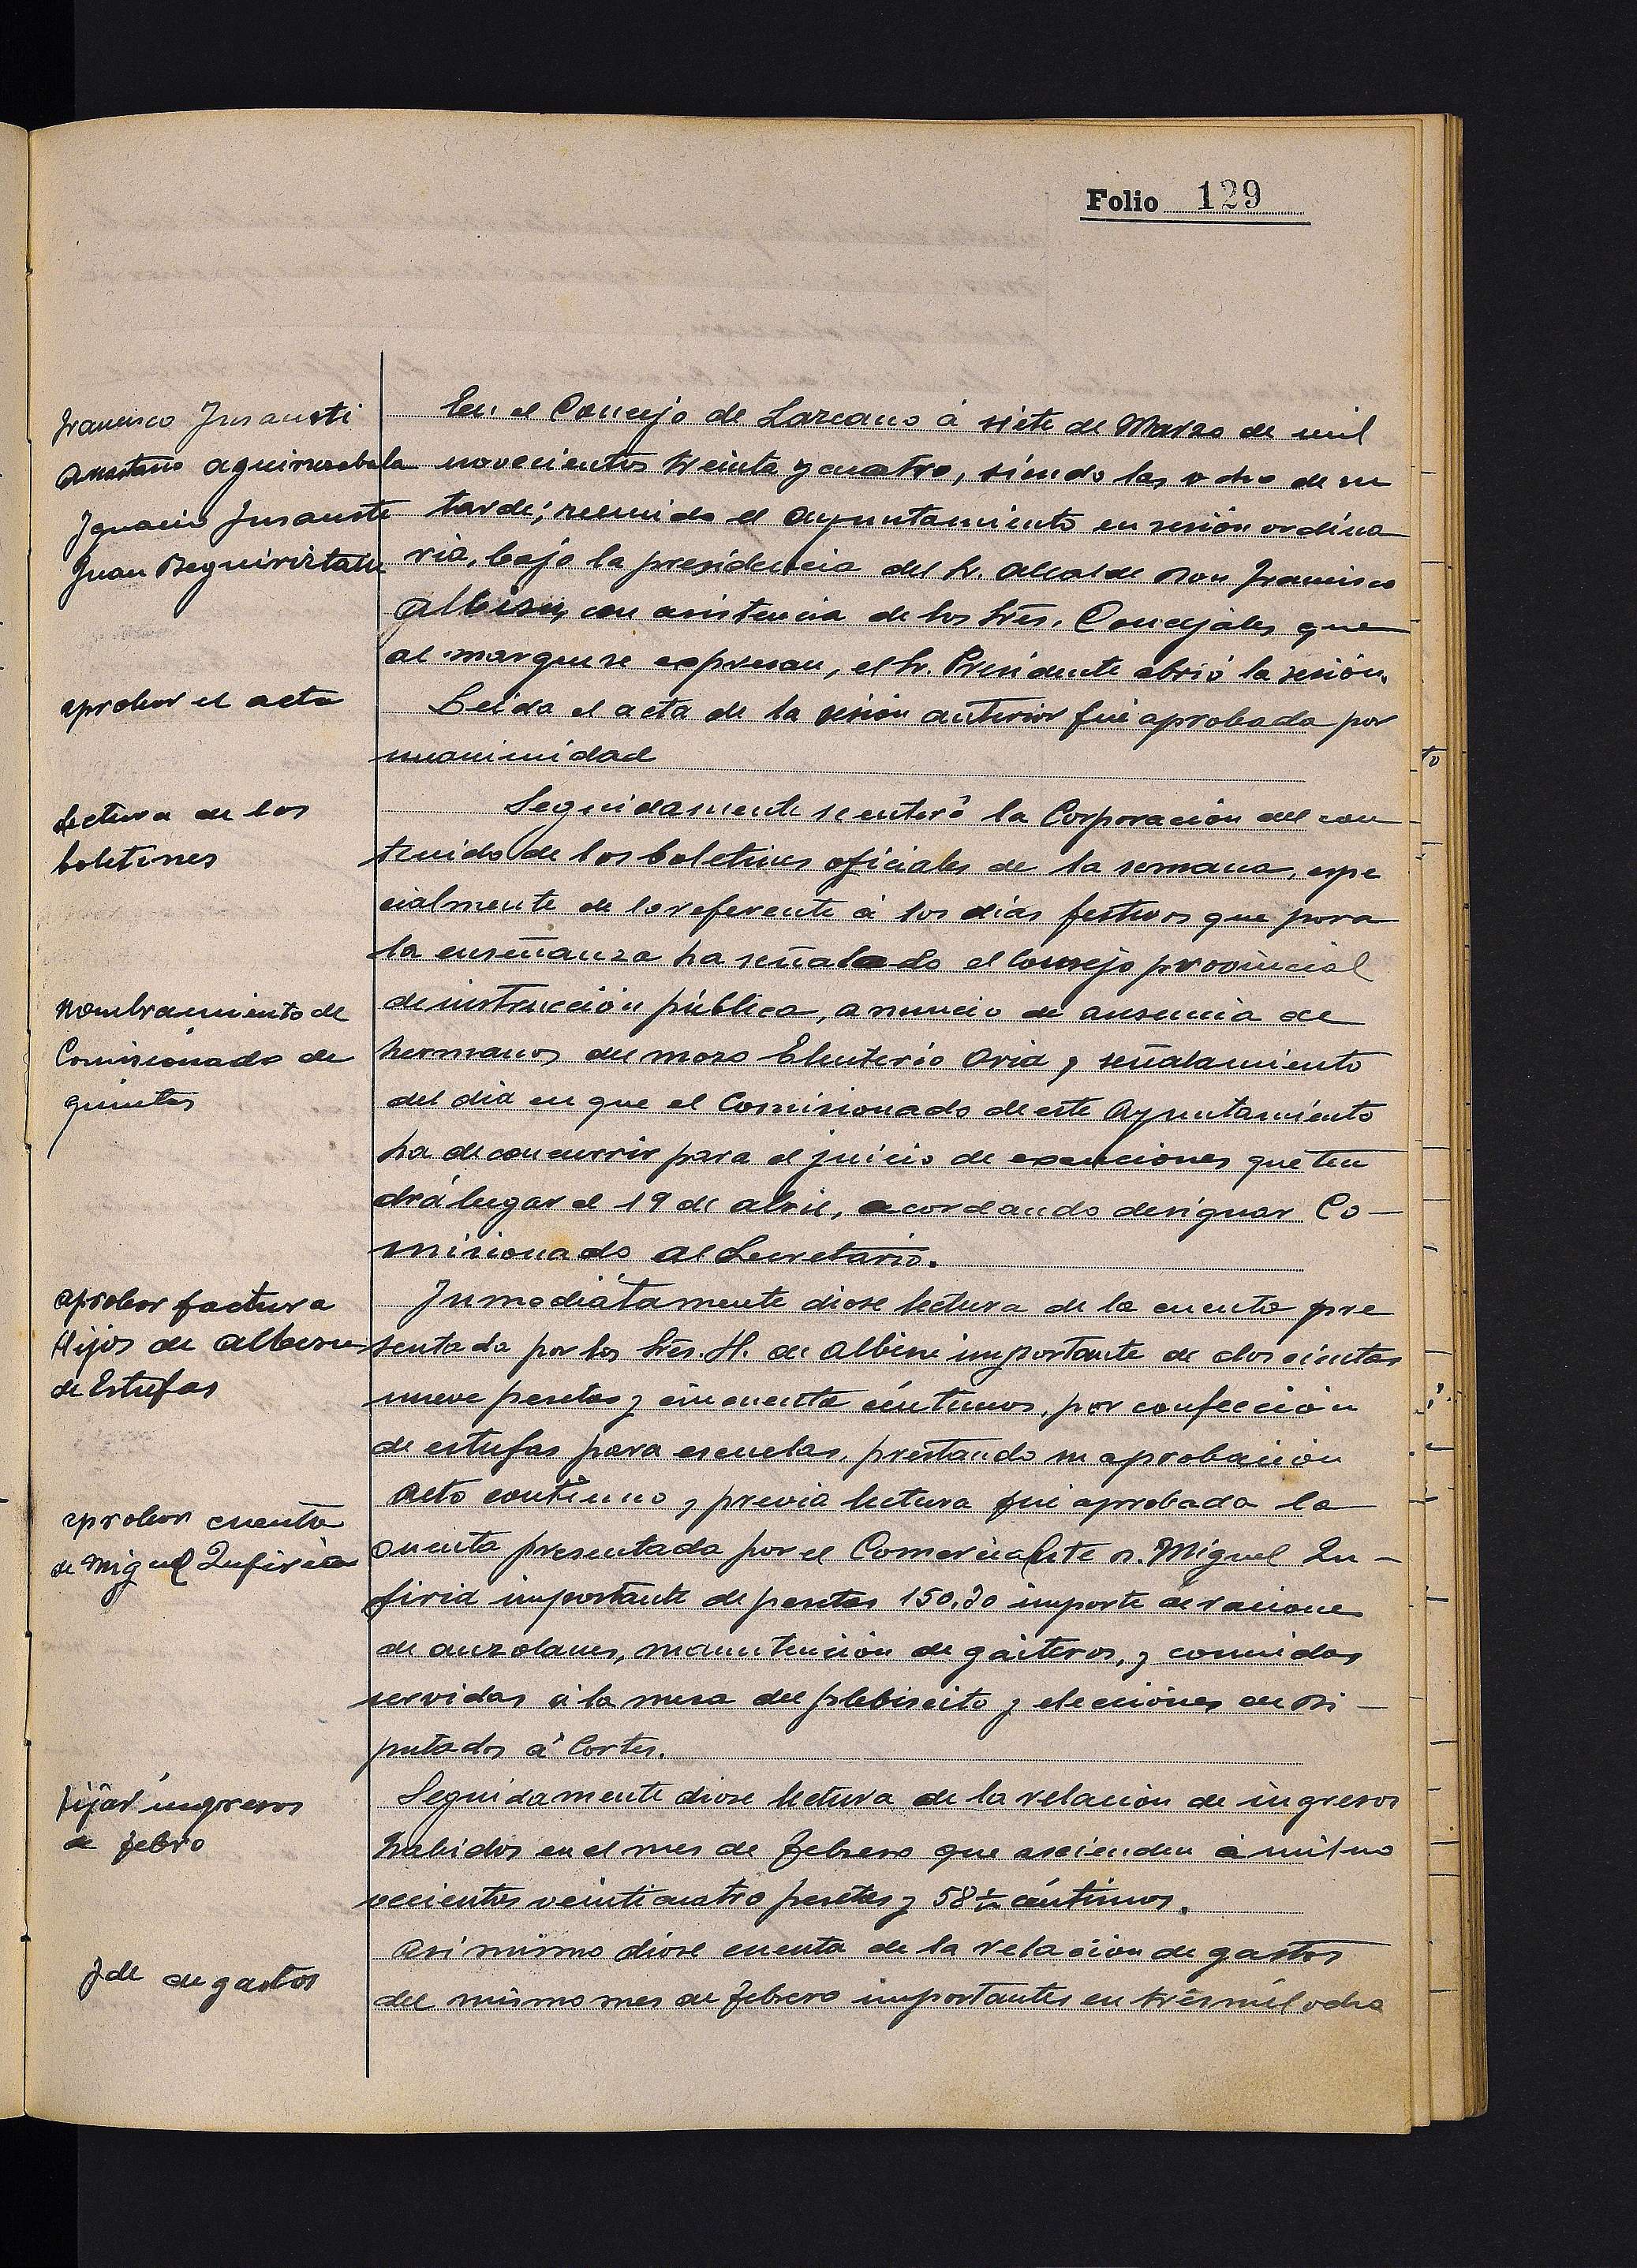 Folio 129
Francisco Insausti
Anastasio Aguirrezabala
Ignacio Insausti
Juan Beguiristain
En el Concejo de Lazcano á siete de Marzo de mil
novecientos treinta y cuatro, siendo las ocho de su
tarde; reunido el Ayuntamiento en sesión ordina
ria, bajo la presidencia del Sr. Alcalde Don Francisco
Albisu, con asistencia de los Sres. Concejales que
al margen se expresan, el Sr. Presidente abrió la sesión.
aprobar el acta
Leida el acta de la sesión anterior fué aprobada por
unanimidad
Lectura de los
boletines
Seguidamente se enteró la Corporación del con
tenido de los boletines oficiales de la semana, espe
cialmente de lo referente á los días festivos que para
la enseñanza ha señalado el Consejo provincial
de instrucción pública, anuncio de ausencia de
hermanos del mozo Eleuterio Oria y señalamiento
del día en que el Comisionado de este Ayuntamiento
ha de concurrir para el juicio de exenciones que ten
drá lugar el 19 de abril, acordando designar Co-
misionado al Secretario.
Nombramiento de
Comisionado de
quintas
aprobar factura
Hijos de Albisu
de Estufas
Inmediatamente diose lectura de la cuenta pre
sentada por los Sres. H. de Albisu importante de doscientas
nueve pesetas y cincuenta céntimos, por confección
de estufas para escuelas, prestando su aprobación
aprobar cuenta
de Miguel Zufiria
Acto continuo y previa lectura fué aprobada la
cuenta presentada por el Comerciante D. Miguel Zu-
firia importante de pesetas 150,30 importe de raciones
de auzolanes, manutención de gaiteros, y comidas
servidas á la mesa del plebiscito y elecciones de Di-
putados á Cortes.
fijar ingresos
de febro
Seguidamente diose lectura de la relación de ingresos
habidos en el mes de febrero que ascienden á mil no
vecientas veinticuatro pesetas y 58 1/2 céntimos.
Id de gastos
Asi mismo diose cuenta de la relación de gastos
del mismo mes de febrero importantes en tres mil ocho